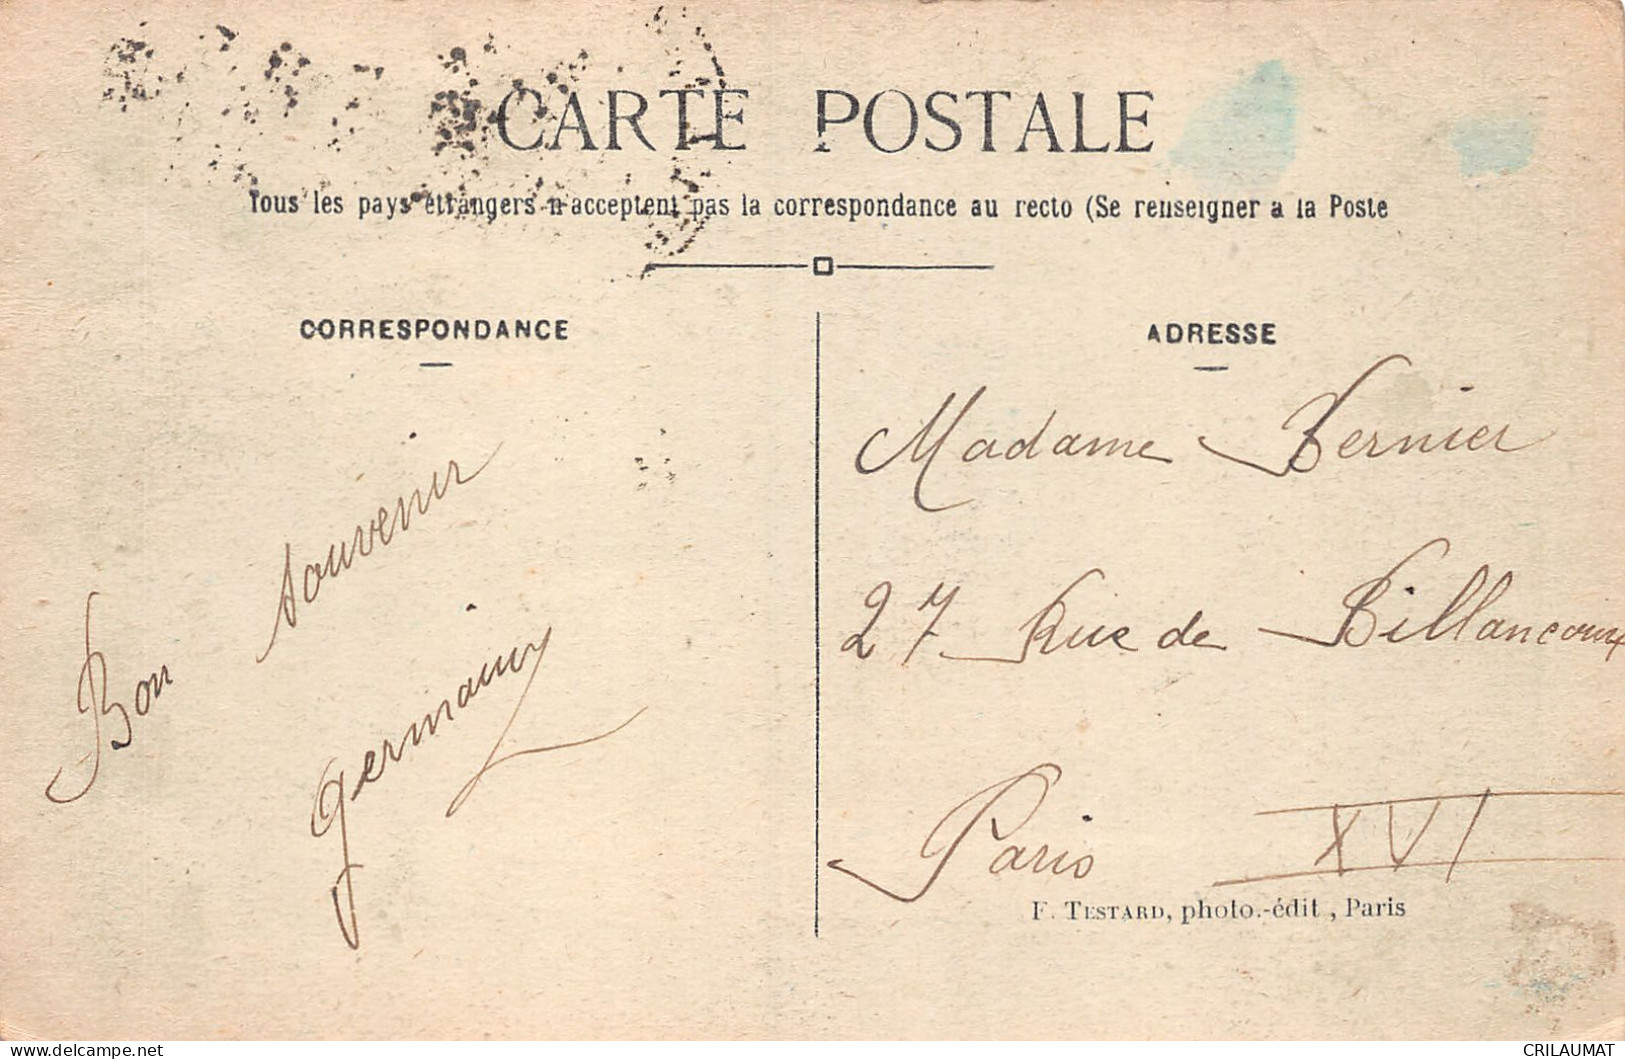 CARTE POSTALE
Tous les pays étrangers n'acceptent pas la correspondance au recto (Se renseigner a la Poste
CORRESPONDANCE
Bon souvenir
ADRESSE
Madame Vernier
27 Rue de Billancourt
Paris XVI
F. TESTARD, photo.-édit, Paris
www.delcampe.net
CRILAUMAT